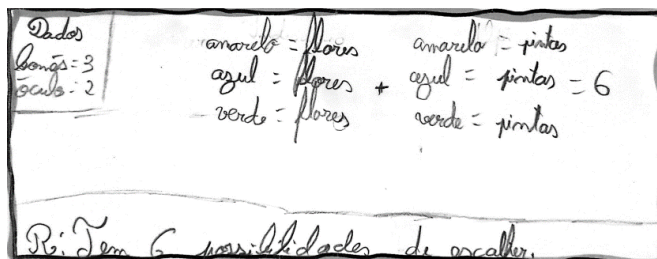 Dados
bonés = 3
óculo = 2
amarelo = flores
azul = flores +
verde = flores
amarelo = pintas
azul = pintas = 6
verde = pintas
R: Tem 6 possibilidades de escolher.